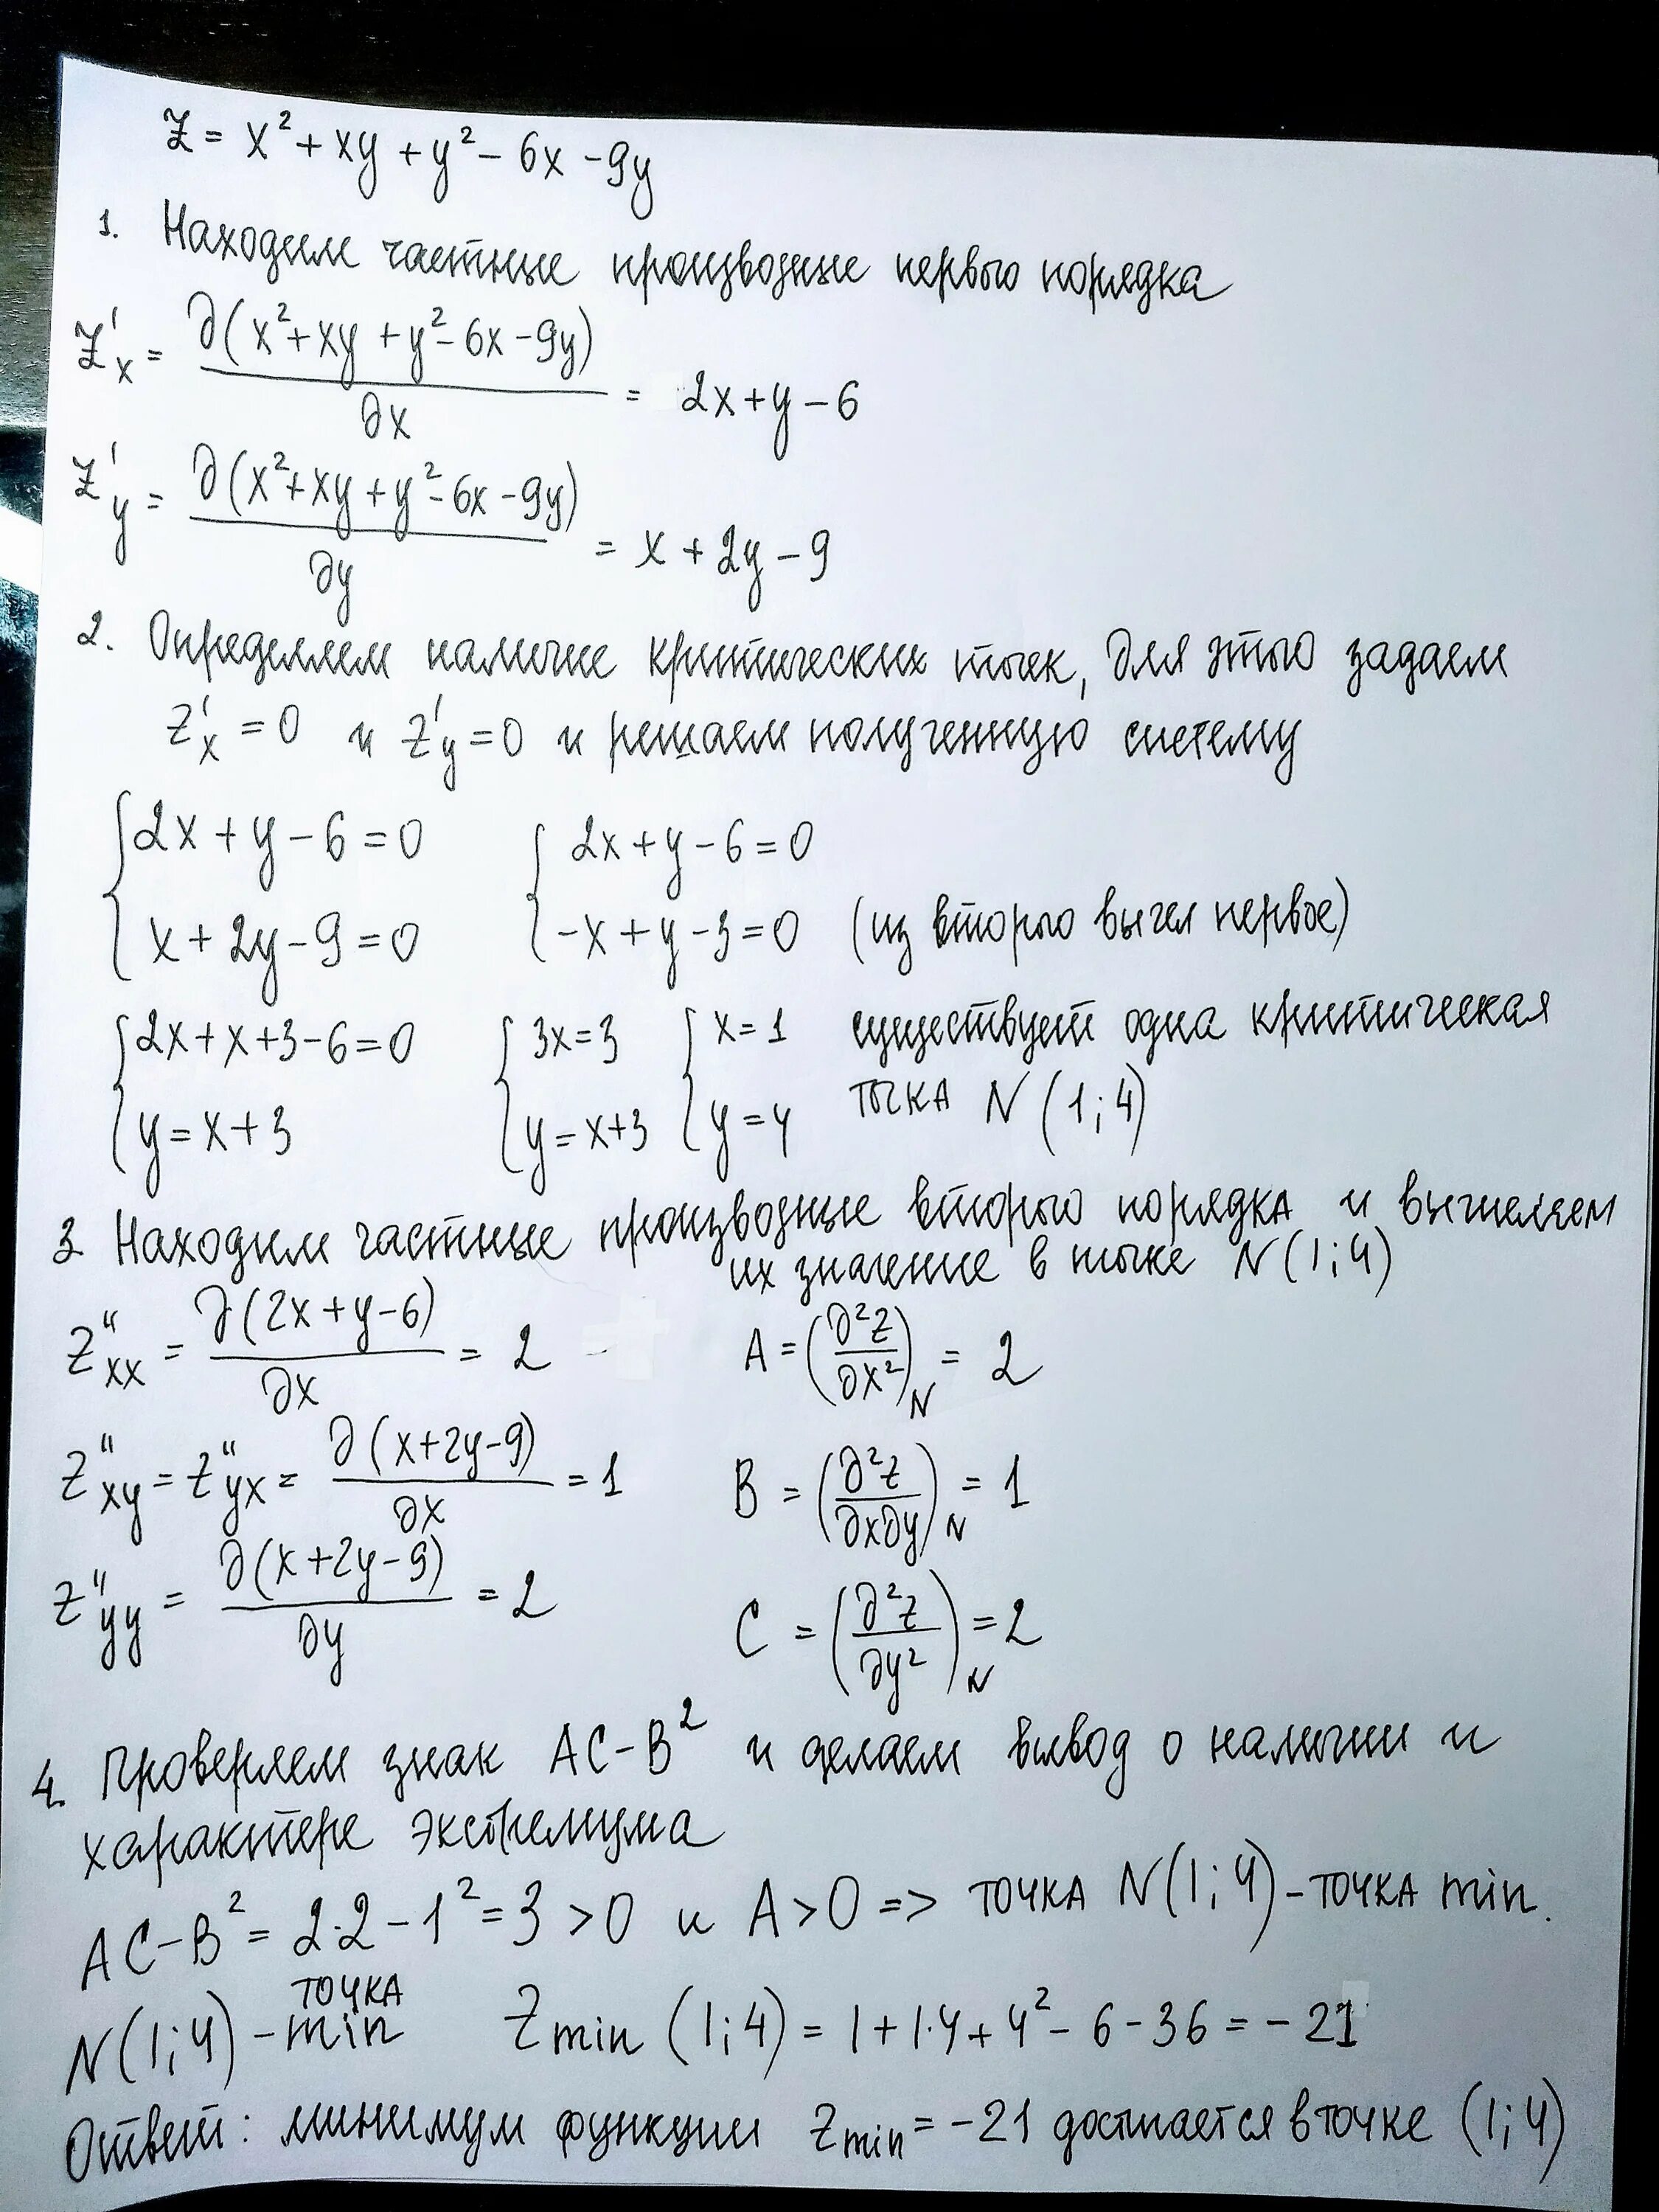 Z = x² + xy + y² − 6x − 9y
1. Находим частные производные первого порядка
Z'x = ∂(x² + xy + y² − 6x − 9y) / ∂x = 2x + y − 6
Z'y = ∂(x² + xy + y² − 6x − 9y) / ∂y = x + 2y − 9
2. Определяем наличие критических точек, для этого задаем
Z'x = 0 и Z'y = 0 и решаем полученную систему
{ 2x + y − 6 = 0 { 2x + y − 6 = 0
{ x + 2y − 9 = 0 { −x + y − 3 = 0 (из второго вычел первое)
{ 2x + x + 3 − 6 = 0 { 3x = 3 { x = 1 существует одна критическая
{ y = x + 3 { y = x + 3 { y = 4 точка N (1; 4)
3. Находим частные производные второго порядка и вычисляем
их значение в точке N (1; 4)
Z''xx = ∂(2x + y − 6) / ∂x = 2 A = (∂²Z / ∂x²)N = 2
Z''xy = Z''yx = ∂(x + 2y − 9) / ∂x = 1 B = (∂²Z / ∂x∂y)N = 1
Z''yy = ∂(x + 2y − 9) / ∂y = 2 C = (∂²Z / ∂y²)N = 2
4. Проверяем знак AC − B² и делаем вывод о наличии и
характере экстремума
AC − B² = 2·2 − 1² = 3 > 0 и A > 0 => точка N(1; 4) − точка min.
N(1; 4) − точка min Zmin (1; 4) = 1 + 1·4 + 4² − 6 − 36 = −21
Ответ: минимум функции Zmin = −21 достигается в точке (1; 4)